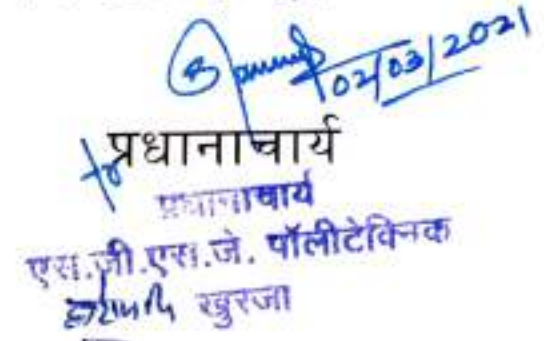 02/03/2021
प्रधानाचार्य
प्रधानाचार्य
एस.जी.एस.जे. पॉलीटेक्निक
खुरजा